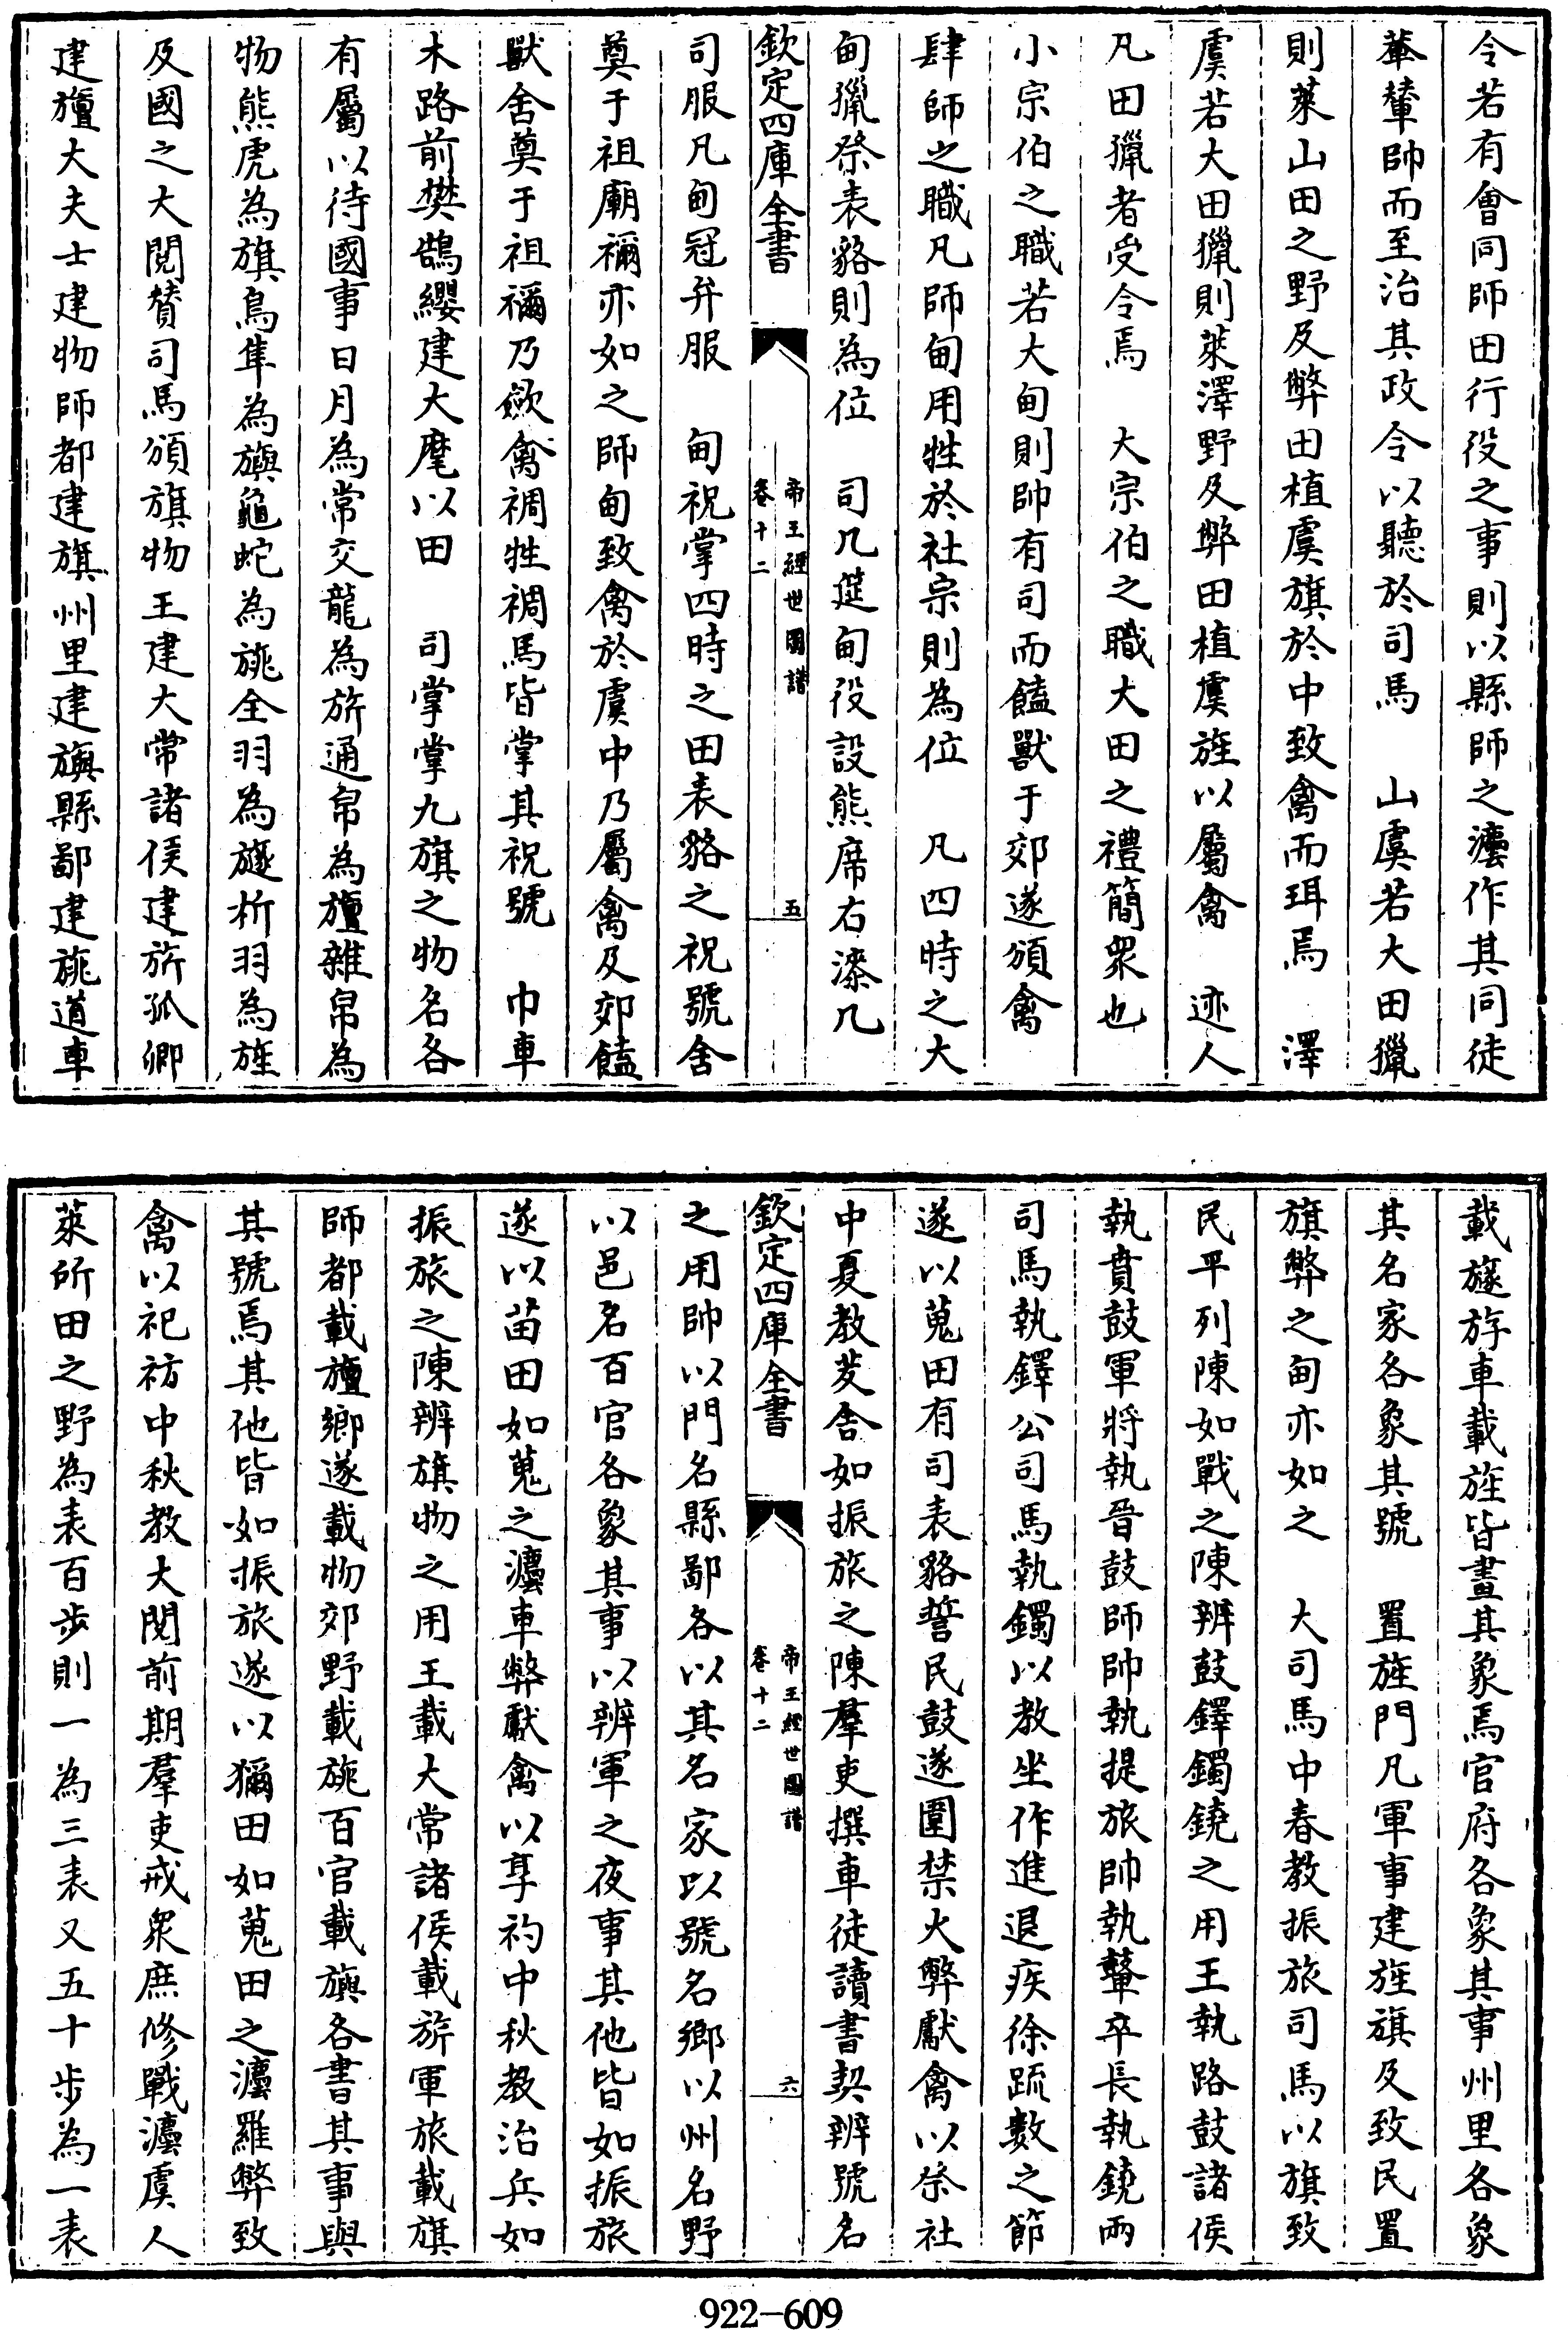 令若有會同師田行役之事則以縣師之灋作其同徒
輂輦帥而至治其政令以聽於司馬　山虞若大田獵
則萊山田之野及弊田植虞旗於中致禽而珥焉　澤
虞若大田獵則萊澤野及弊田植虞旌以屬禽　迹人
凡田獵者受令焉　大宗伯之職大田之禮簡衆也
小宗伯之職若大甸則帥有司而饁獸于郊遂頒禽
肆師之職凡師甸用牲於社宗則為位　凡四時之大
甸獵祭表貉則為位　司几筵甸役設熊席右漆几
欽定四庫全書
帝王經世圖譜
卷十二
五
司服凡甸冠弁服　甸祝掌四時之田表貉之祝號舍
奠于祖廟禰亦如之師甸致禽於虞中乃屬禽及郊饁
獸舍奠于祖禰乃斂禽禂牲禂馬皆掌其祝號　巾車
木路前樊鵠纓建大麾以田　司掌掌九旗之物名各
有屬以待國事日月為常交龍為旂通帛為旜雜帛為
物熊虎為旗鳥隼為旟龜蛇為旐全羽為旞析羽為旌
及國之大閱贊司馬頒旗物王建大常諸侯建旂孤卿
建旜大夫士建物師都建旗州里建旟縣鄙建旐道車
載旞斿車載旌皆畫其象焉官府各象其事州里各象
其名家各象其號　置旌門凡軍事建旌旗及致民置
旗弊之甸亦如之　大司馬中春教振旅司馬以旗致
民平列陳如戰之陳辨鼓鐸鐲鐃之用王執路鼓諸侯
執賁鼓軍將執晉鼓師帥執提旅帥執鼙卒長執鐃兩
司馬執鐸公司馬執鐲以教坐作進退疾徐疏數之節
遂以蒐田有司表貉誓民鼓遂圍禁火弊獻禽以祭社
中夏教茇舍如振旅之陳羣吏撰車徒讀書契辨號名
欽定四庫全書
帝王經世圖譜
卷十二
六
之用帥以門名縣鄙各以其名家以號名鄉以州名野
以邑名百官各象其事以辨軍之夜事其他皆如振旅
遂以苗田如蒐之灋車弊獻禽以享礿中秋教治兵如
振旅之陳辨旗物之用王載大常諸侯載旂軍旅載旗
師都載旜鄉遂載物郊野載旐百官載旟各書其事與
其號焉其他皆如振旅遂以獮田如蒐田之灋羅弊致
禽以祀祊中秋教大閱前期羣吏戒衆庶修戰灋虞人
萊所田之野為表百步則一為三表又五十步為一表
922-609